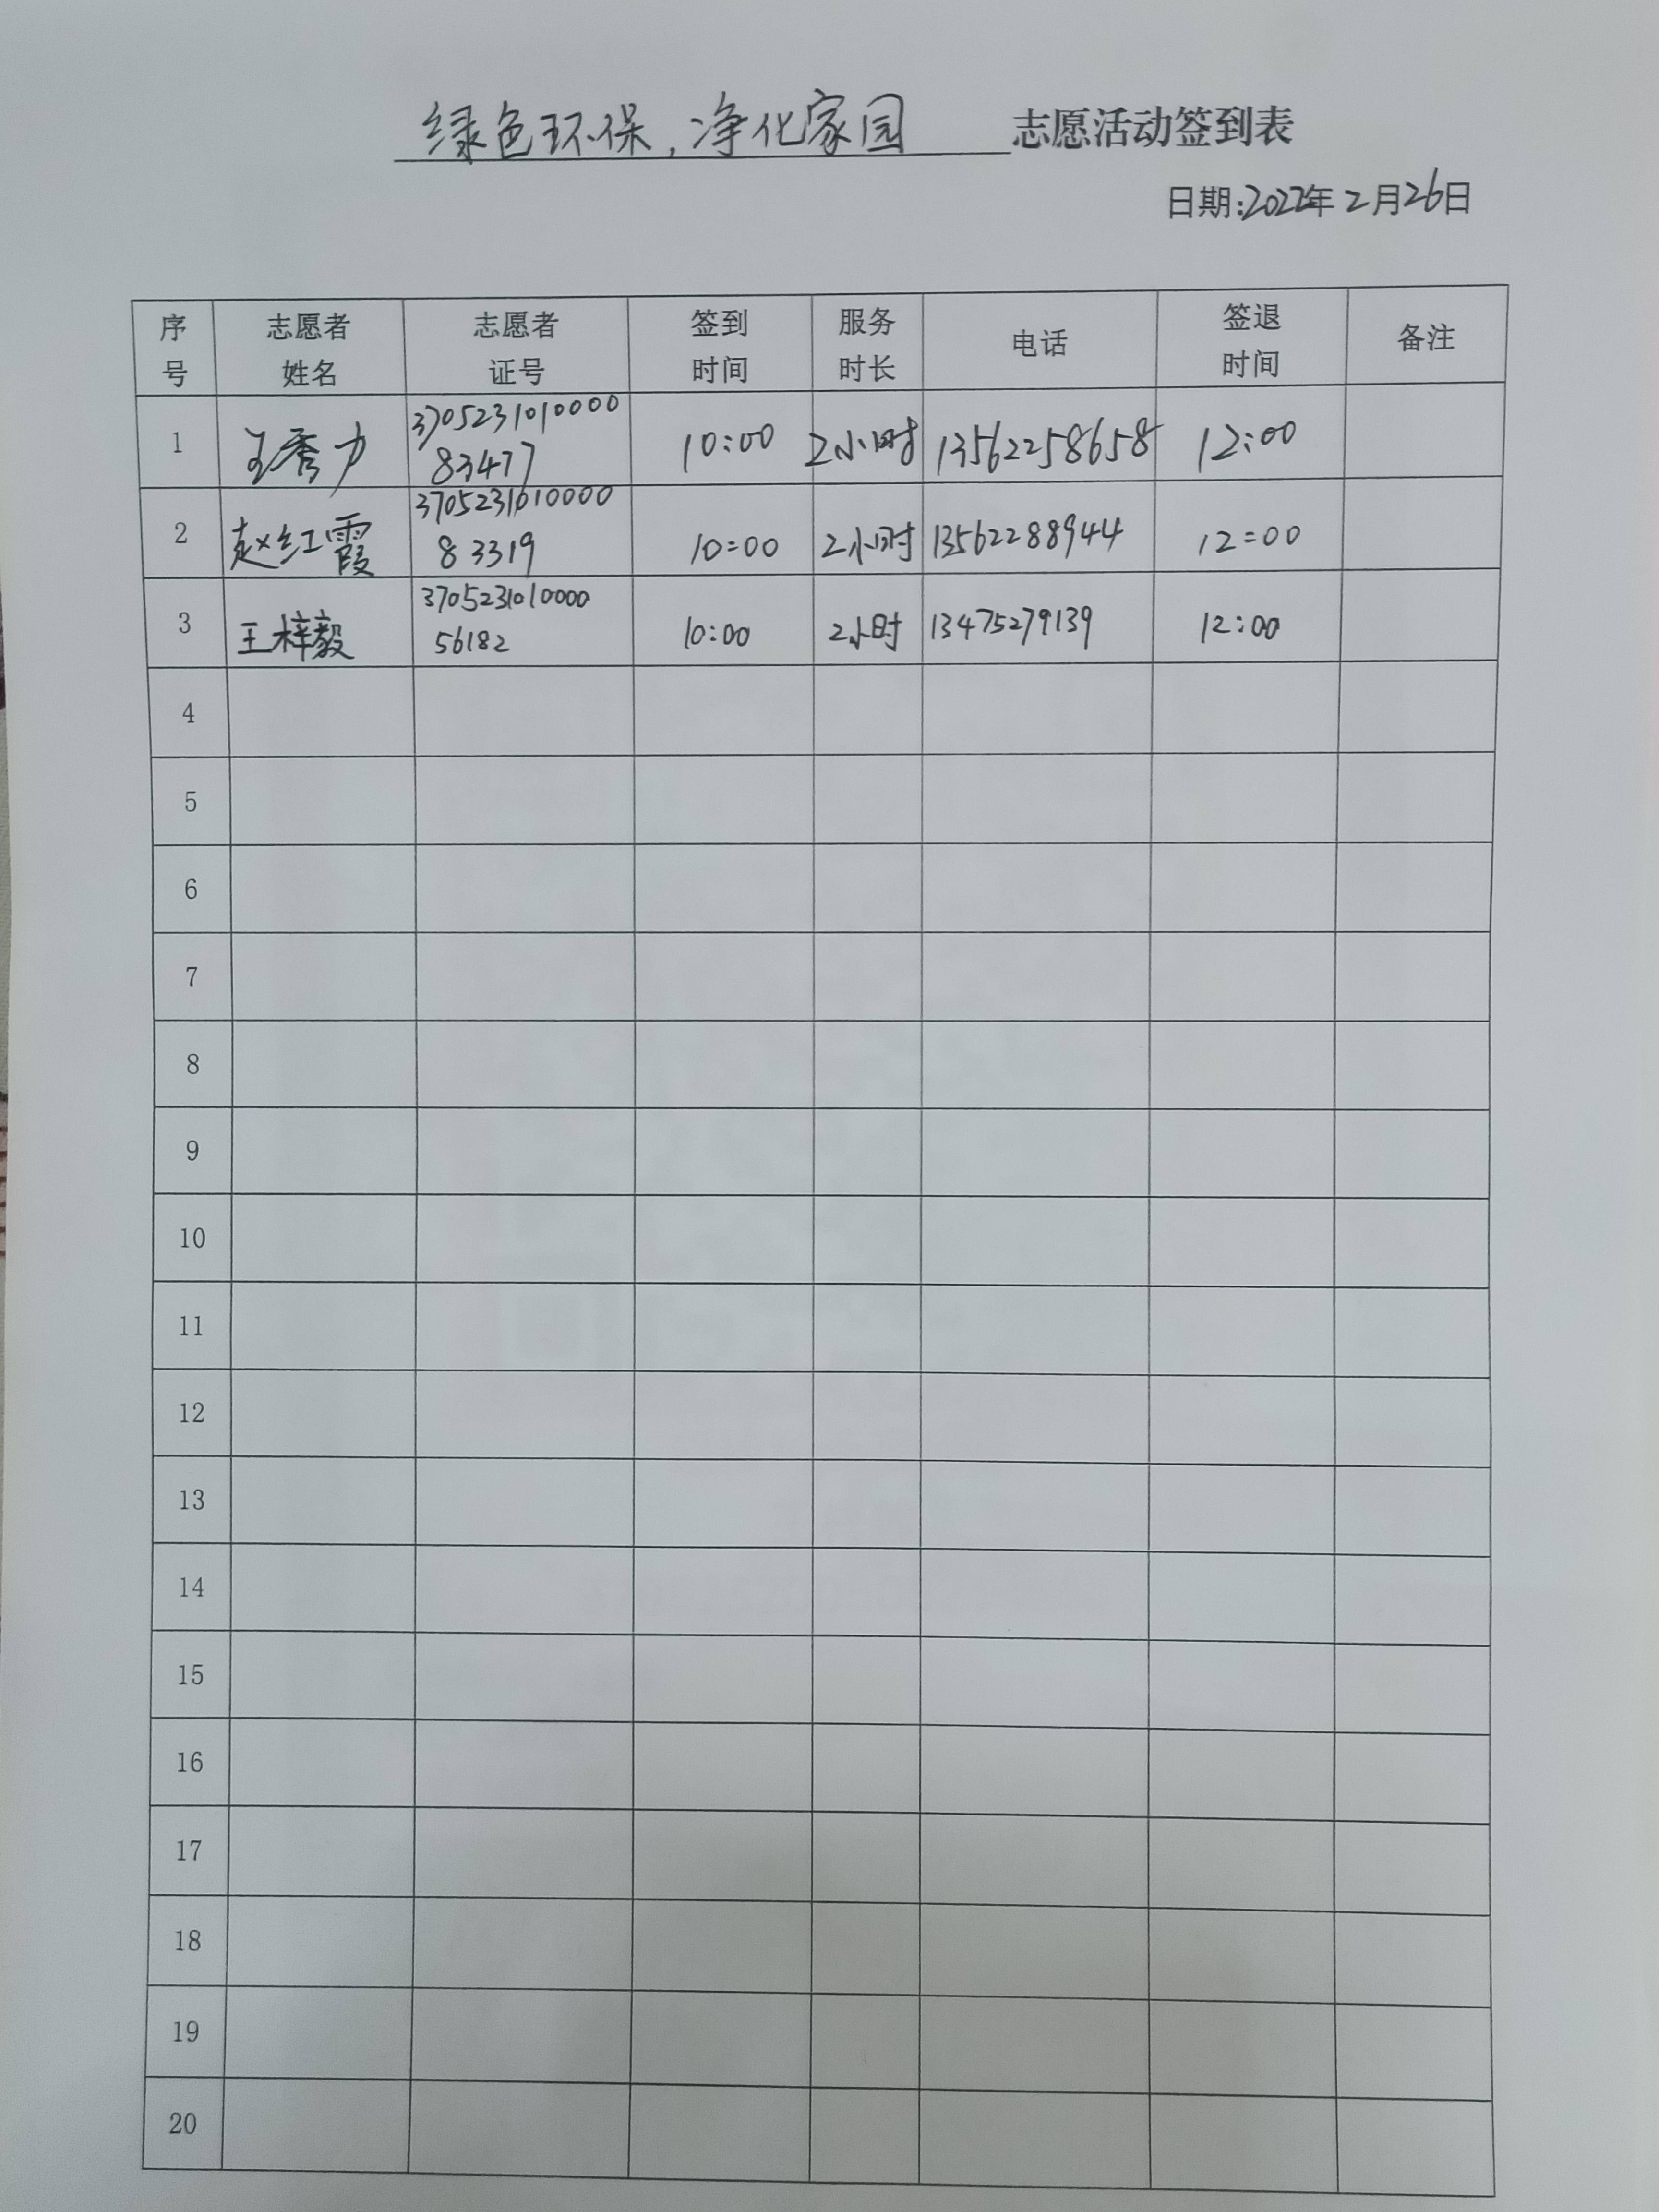 绿色环保,净化家园 志愿活动签到表
日期:2022年2月26日
序号 志愿者姓名 志愿者证号 签到时间 服务时长 电话 签退时间 备注
1 王秀力 370523101000083477 10:00 2小时 13562258658 12:00
2 赵红霞 370523101000083319 10:00 2小时 13562288944 12:00
3 王梓毅 370523101000056182 10:00 2小时 13475279139 12:00
4
5
6
7
8
9
10
11
12
13
14
15
16
17
18
19
20